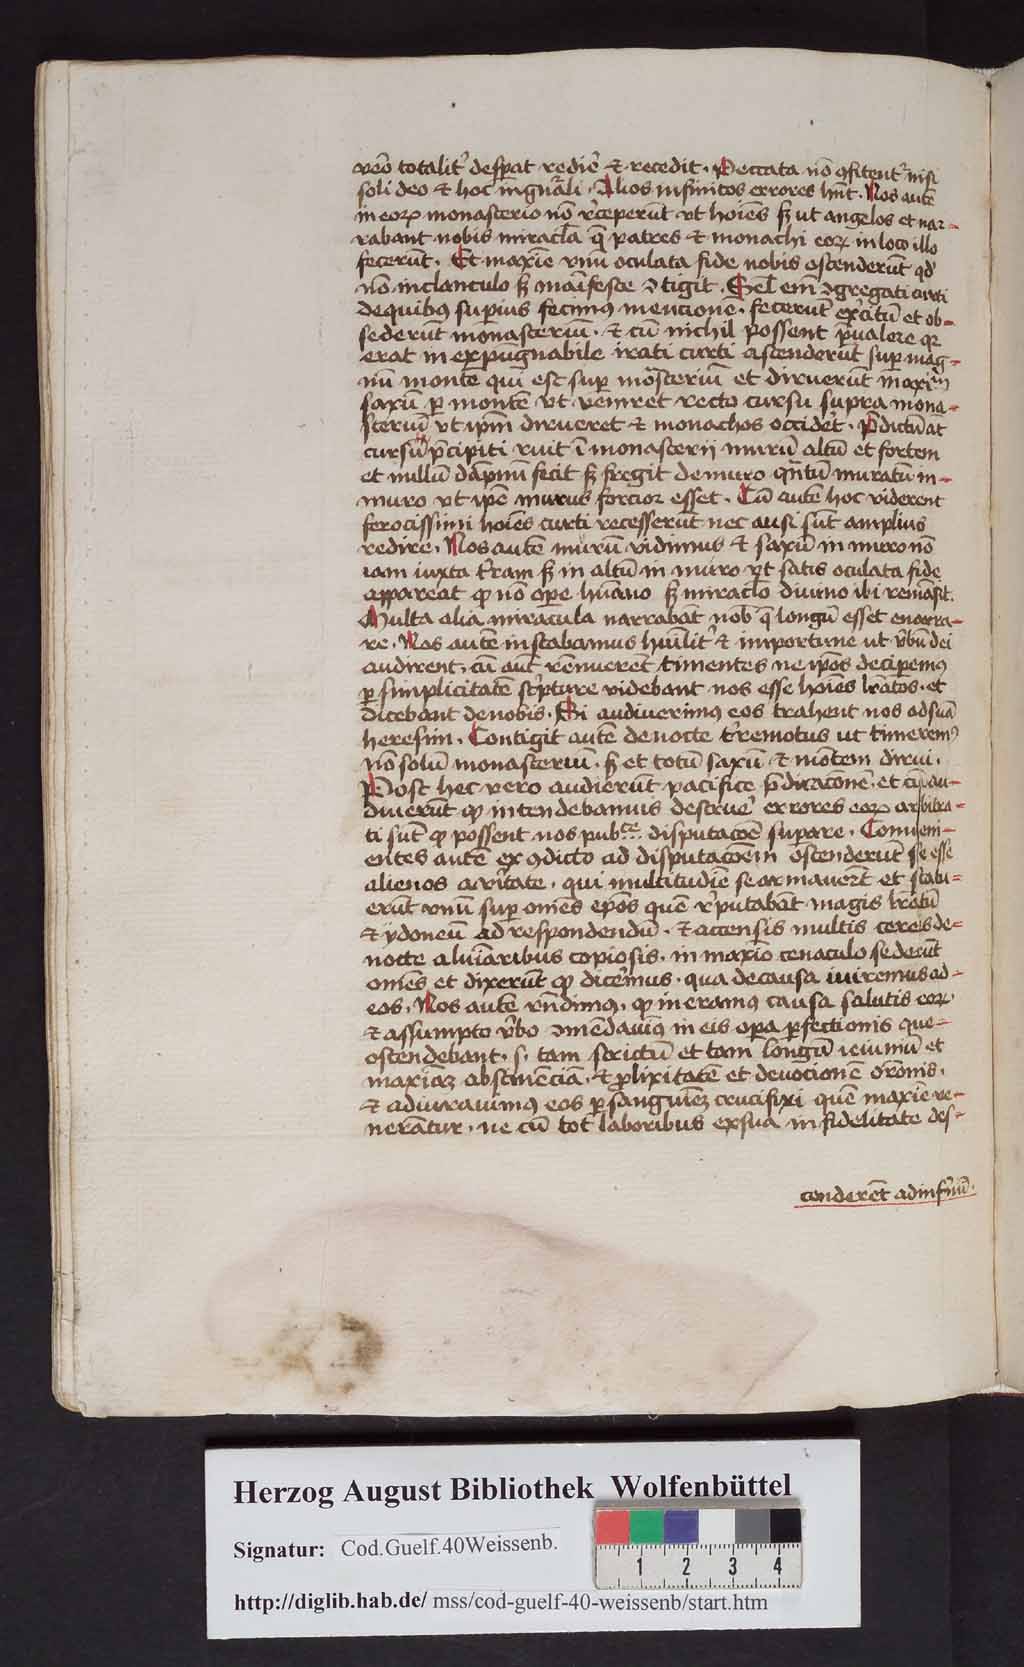 vero totalit᷑ desperat redie᷑ et recedit. Peccata nō ꝯfitent᷑ nisi
soli deo et hoc in gn̄rali. Alios infinitos errores hn̄t. Nos autē
in eorꝝ monasterio nō r᷑ceperūt vt hoīes sꝫ ut angelos et nar-
rabant nobis miracl̄a q̄ patres et monachi eorꝝ in loco illo
fecerūt. Et maxīe vnū oculata fide nobis ostenderūt qd᷑
nō in clanculo sꝫ maīfeste ꝯtigit. Sel̄ em̄ ꝯgregati curti
de quibꝰ suꝑius fecimꝰ mencionē. fecerūt ex᷑citū et ob-
sederūt monasteriū. et cū nichil possent p̄ualere qꝛ
erat inexpugnabile irati curti ascenderūt suꝑ mag-
nū montē qui est suꝑ mōsteriū et diruerūt maximū
saxū ꝑ montē vt veniret recto cursu supra mona-
steriū vt ip̄m dirueret et monachos occider᷑. P̄dictū aūt
cursū p̄cipiti ruit ī monasterij murū altū et fortem
et nullū dāpnū fecit sꝫ fregit de muro qn̄tū muratū in-
muro vt ip̄e murus forcior esset. Cū autē hoc viderent
ferocissimi hoīes curti recesserūt nec ausi sūt amplius
redire. Nos autē murū vidimus et saxū in muro nō
iam iuxta t᷑ram sꝫ in altū in muro vt satis oculata fide
appareat ꝙ nō oꝑe hūano sꝫ miraclo diuino ibi remāsit.
Multa alia miracula narrabāt nob᷑ q̄ longū esset enarra-
re. Nos autē instabamus hūilit᷑ et importune ut v᷑bū dei
audirent. cū aūt rēnuerēt timentes ne ip̄os deciperemꝰ
ꝑ simplicitatē scripture videbant nos esse hoīes lr̄atos. et
dicebant de nobis. Si audiuerimꝰ eos trahent nos ad suā
heresim. Contigit autē de nocte t᷑remotus ut timeremꝰ
nō solū monasteriū. sꝫ et totū saxū et mōtem dirui.
Post hec vero audierūt pacifice p̄dicaconē. et cū au-
diuerūt ꝙ intendebamus destruer᷑ errores eorꝝ arbitra-
ti sūt ꝙ possent nos pub᷑ce disputacōe suꝑare. Conueni-
entes autē ex ꝯdicto ad disputacōem ostenderūt se esse
alienos a v᷑itate. qui multitudīe se armauer̄t et statu-
erūt vnū suꝑ omēs ep̄os quē r᷑putabāt magis lr̄atū
et ydoneū ad respondendū. et accensis multis cereis de-
nocte a luīaribus copiosis. in maxīo cenaculo sederūt
omēs et dixerūt ꝙ dicermus. qua de causa iuiremus ad-
eos. Nos autē rn̄dimꝰ. ꝙ ineramꝰ causa salutis eorꝝ
et assumpto v᷑bo ꝯmēdauimꝰ in eis oꝑa ꝑfectionis que-
ostendebant. s. tam strictū et tam longū ieiuniū et
maxīaꝫ abstinēciā. et ꝓlixitatē et deuocionē or̄onis.
et adiurauimꝰ eos ꝑ sanguīeꝫ crucifixi quē maxīe ve-
nerātur. ne cū tot laboribus ex sua infidelitate des-
cenderēt ad infernū.
Herzog August Bibliothek Wolfenbüttel
Signatur: Cod.Guelf.40Weissenb.
1 2 3 4
http://diglib.hab.de/ mss/cod-guelf-40-weissenb/start.htm